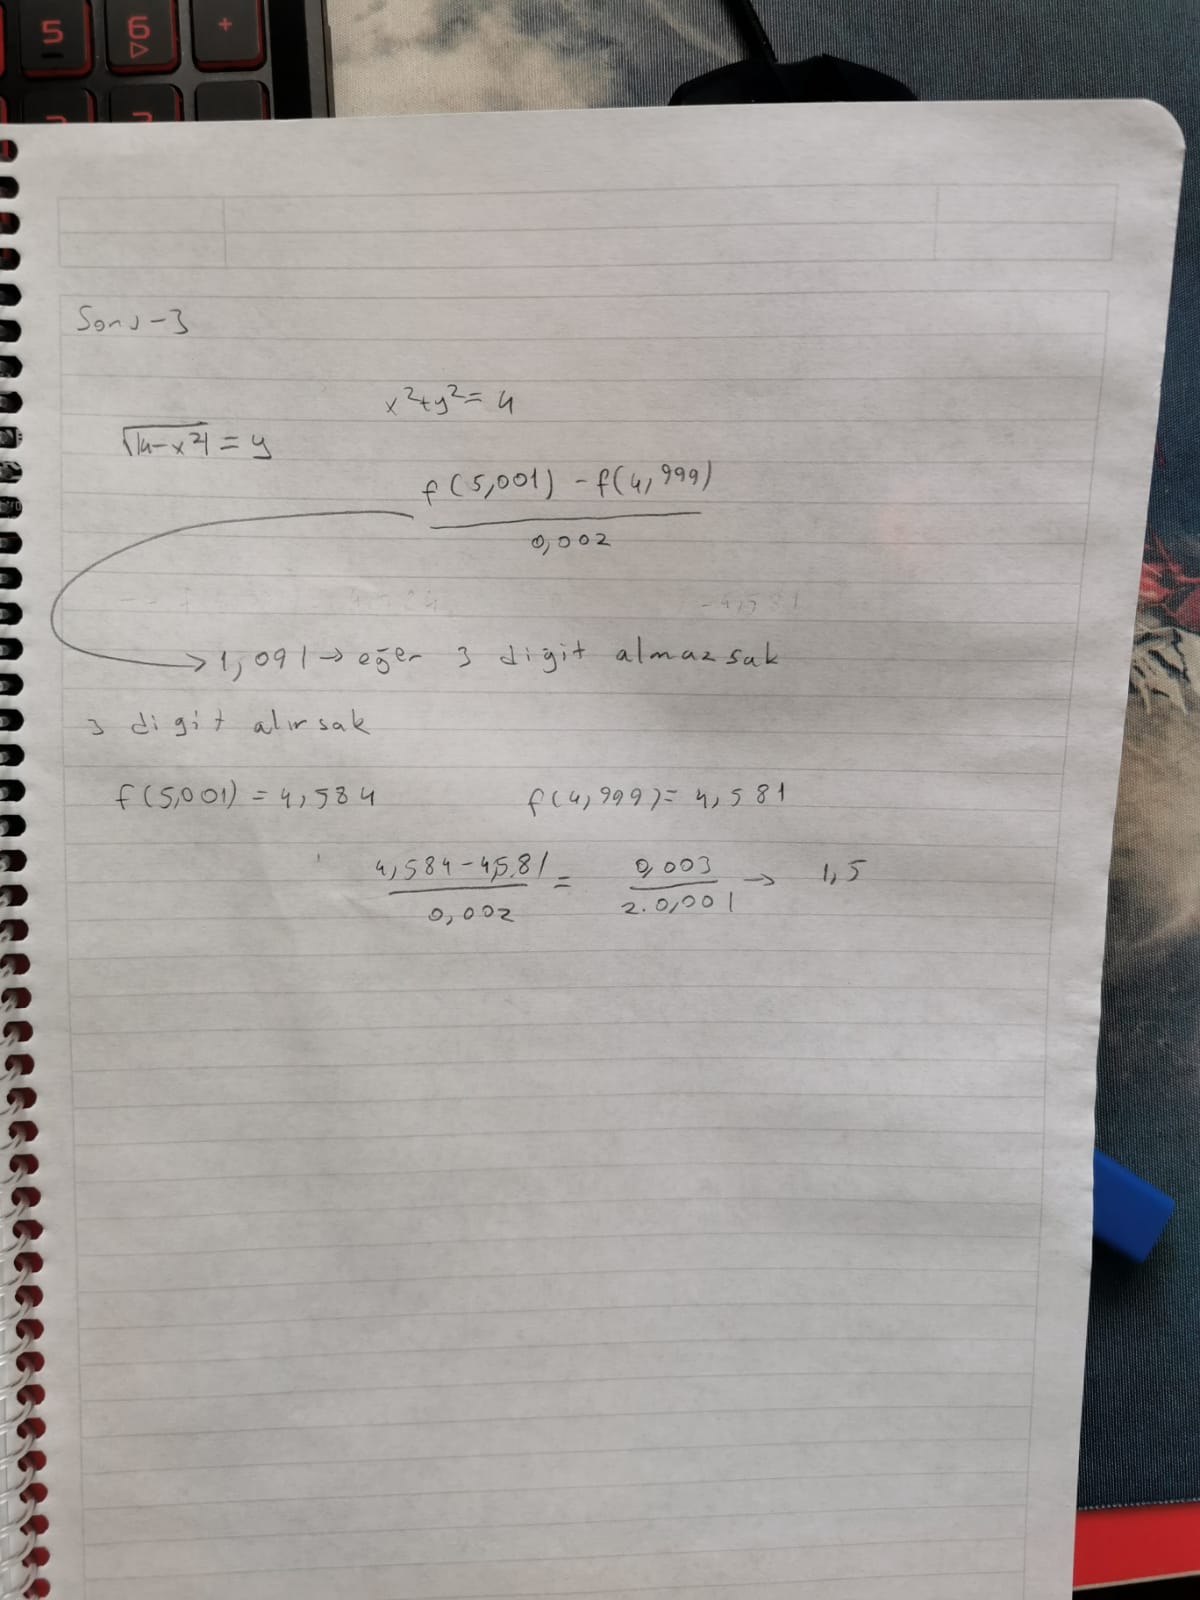 5 6 +
Soru-3
x²+y²=4
√|4-x²| = y
f(5,001) - f(4,999)
0,002
-4,581
→ 1,091 → eğer 3 digit almazsak
3 digit alırsak
f(5,001) = 4,584 f(4,999)= 4,581
4,584-4,581 = 0,003 → 1,5
0,002 2.0,001